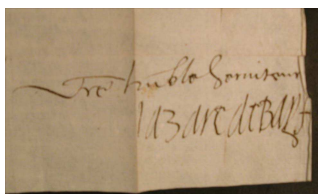 Vre humble serviteur
lazare debayf